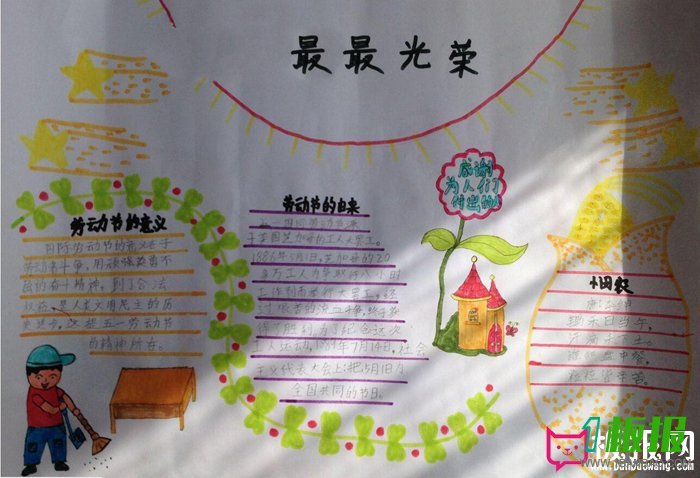 最最光荣
劳动节的意义
国际劳动节的意义在于
劳动者斗争,用顽强英勇不
屈的奋斗精神,到了合法
权益,是人类文明民主的历
史进步,这些五一劳动节
的精神所在。
劳动节的由来
五一国际劳动节源
于美国芝加哥的工人大罢工。
1886年5月1日,芝加哥的20
多万工人为争取八小时
工作制而举行大罢工,经
过艰苦的流血斗争,终于获
得了胜利,为了纪念这次
工人运动,1889年7月14日,社会
主义代表大会上:把5月1日为
全国共同的节日。
感谢
为人们
付出的人
锄禾日当午,
汗滴禾下土。
谁知盘中餐,
粒粒皆辛苦。
1板报
板报网